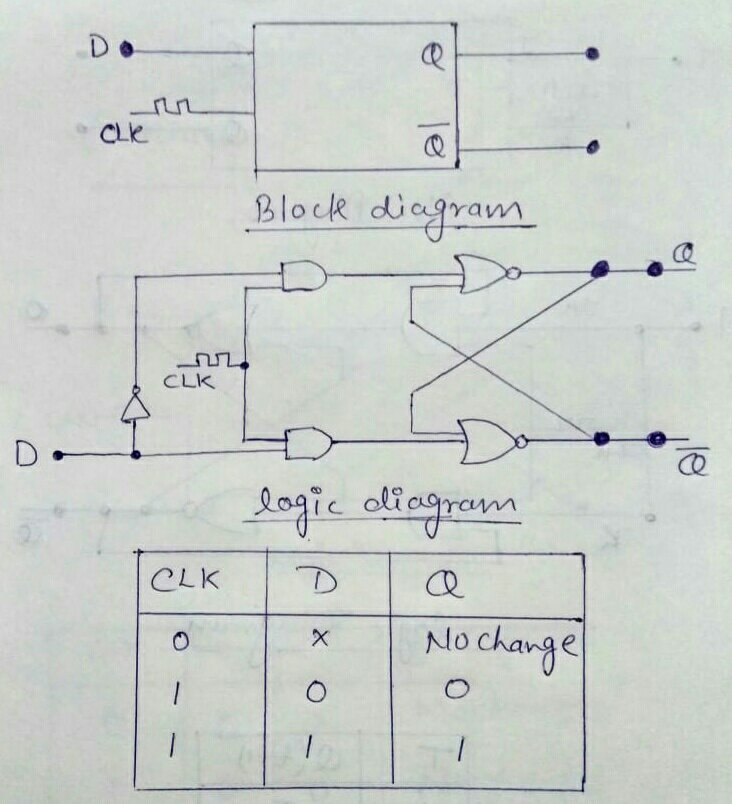 D Q
CLK Q̅
Block diagram
Q
CLK
D
Q̅
logic diagram
CLK D Q
0 x No change
1 0 0
1 1 1